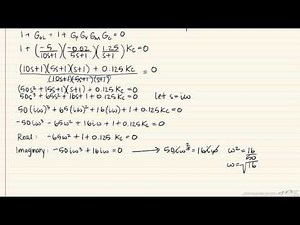 1 + G_OL = 1 + G_f G_v G_m G_c = 0
1 + (-5/(10s+1)) (-0.02/(5s+1)) (1.25/(s+1)) K_c = 0
((10s+1)(5s+1)(s+1) + 0.125 K_c)/((10s+1)(5s+1)(s+1)) = 0
(50s² + 15s + 1)(s+1) + 0.125 K_c = 0
50s³ + 65s² + 16s + 1 + 0.125 K_c = 0 let s = iω
50(iω)³ + 65(iω)² + 16(iω) + 1 + 0.125 K_c = 0
-50iω³ - 65ω² + 16iω + 1 + 0.125 K_c = 0
Real: -65ω² + 1 + 0.125 K_c = 0
Imaginary: -50iω³ + 16iω = 0 → 50iω³ = 16iω ω² = 16/50